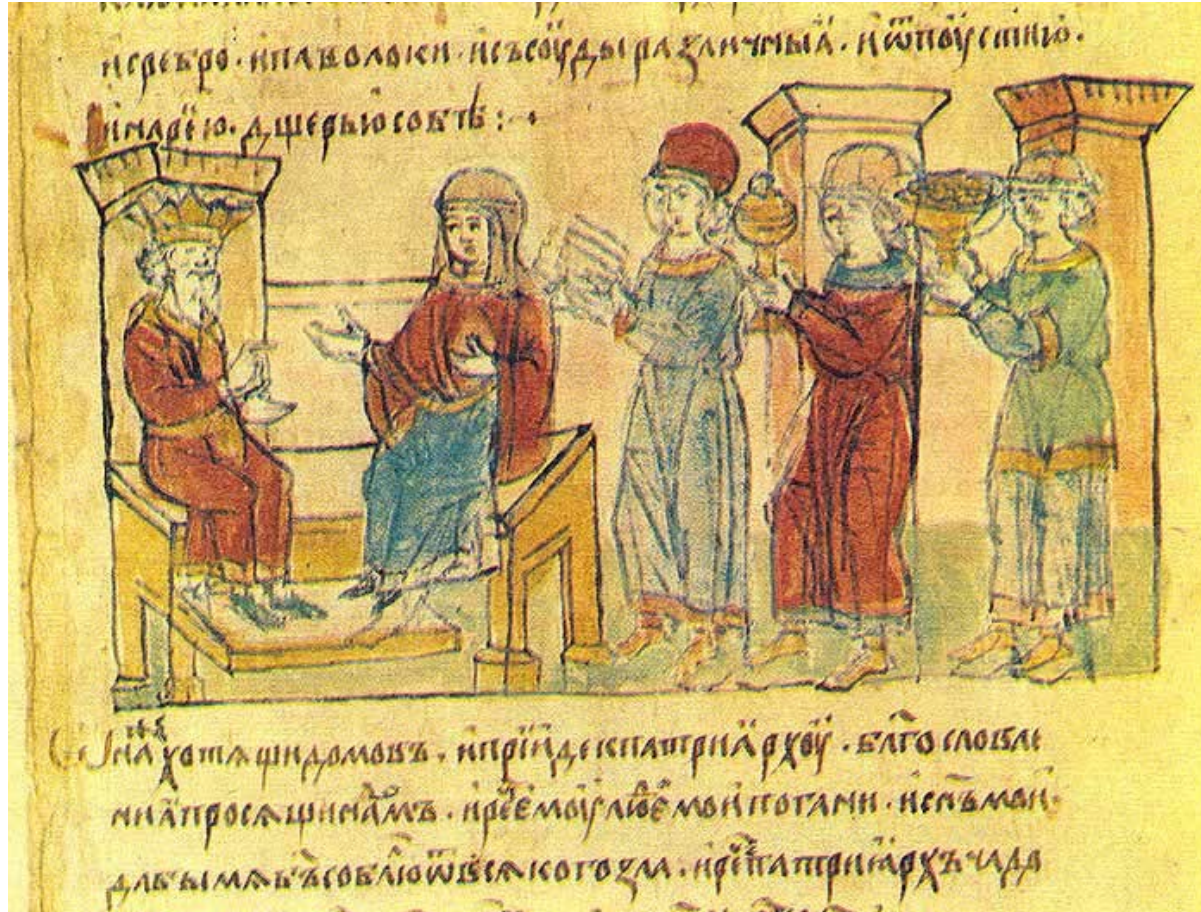 исребро · ипаволоки · исъсоуды различныа · иѿпоустию ·
инарею · дщерьюсобѣ : ·
на хотѧщи домовъ · иприиде кпатриӑрхоу · бл҃гословле
ниӑ просѧщи · ире емоу люе мои погани · исн҃ъ мои ·
дабы мѧ б҃ъ соблю ѿвсѧкого зла · ире патриӑрхъ чадо